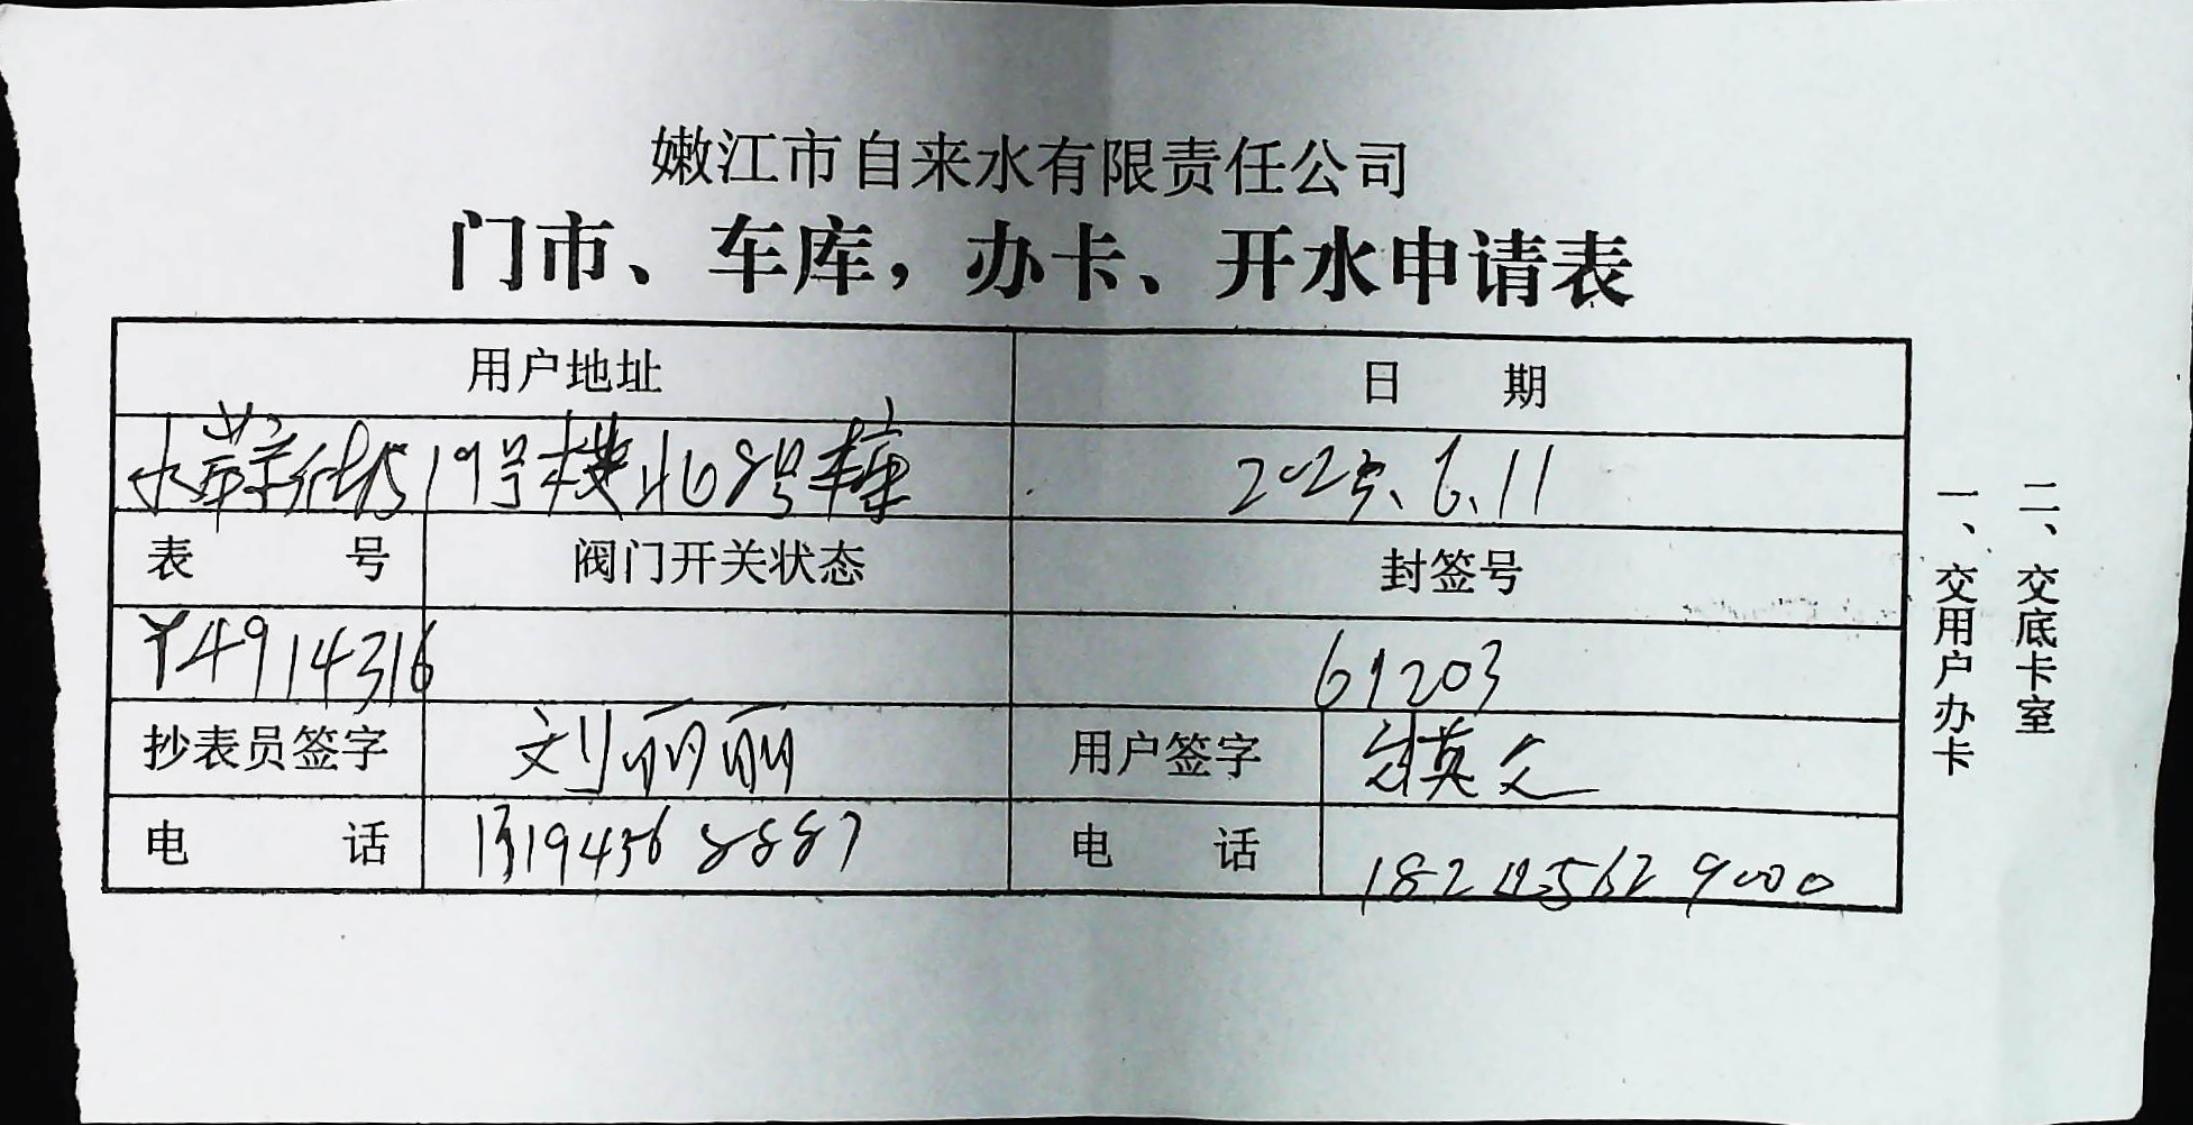 嫩江市自来水有限责任公司
门市、车库，办卡、开水申请表
用户地址 日 期
19号楼 8号车库 2023.6.11
表 号 阀门开关状态 封签号
Y4914316 61203
抄表员签字 刘丽丽 用户签字 英
电 话 13194568887 电 话
一、交用户办卡
二、交底卡室